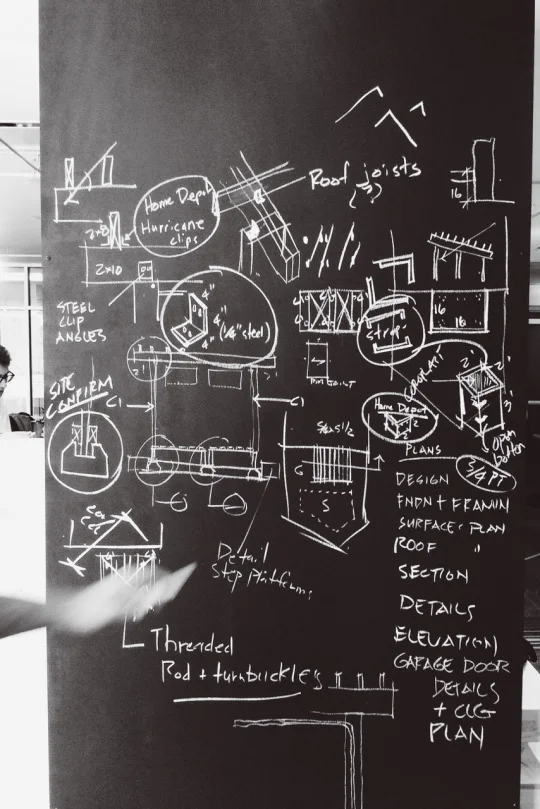 Roof joists
(?)
16
Home Depot
Hurricane
clips
2x8
2x10
4"
4"
4"
(1/4" steel)
STEEL
CLIP
ANGLES
16
16
Strap
2'
2'
3'
SITE
CONFIRM
C1
C1
Home Depot
2
2
Open
bottom
3/4 PT
6
S
PLANS
DESIGN
FNDN + FRAMIN
SURFACE PLAN
ROOF "
SECTION
DETAILS
ELEVATION
GARAGE DOOR
DETAILS
+ CLG
PLAN
Detail
Step platforms
Threaded
Rod + turnbuckles